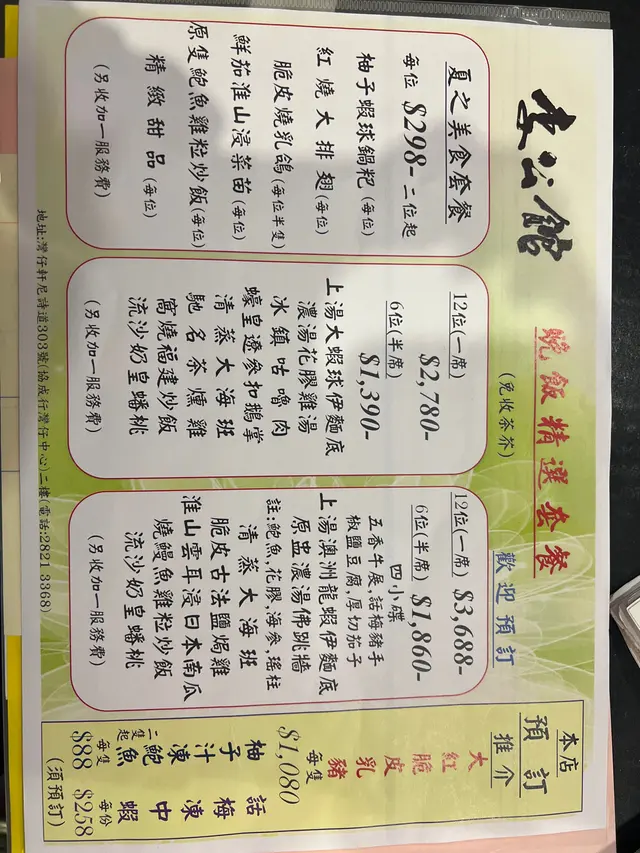 李公館
晚飯精選套餐
(免收茶芥)
歡迎預訂
夏之美食套餐
每位 $298- 二位起
柚子蝦球鍋粑(每位)
紅燒大排翅(每位)
脆皮燒乳鴿(每位半隻)
鮮茄淮山浸菜苗(每位)
原隻鮑魚雞粒炒飯(每位)
精緻甜品(每位)
(另收加一服務費)
12位(一席)
$2,780-
6位(半席)
$1,390-
上湯大蝦球伊麵底
濃湯花膠雞湯
冰鎮咕嚕肉
蠔皇遼參扣鵝掌
清蒸大海班
馳名茶燻雞
窩燒福建炒飯
流沙奶皇蟠桃
(另收加一服務費)
12位(一席) $3,688-
6位(半席) $1,860-
四小碟
五香牛展,話梅豬手
椒鹽豆腐,厚切茄子
上湯澳洲龍蝦伊麵底
原盅濃湯佛跳牆
註:鮑魚,花膠,海參,瑤柱
清蒸大海班
脆皮古法鹽焗雞
淮山雲耳浸日本南瓜
燒鰻魚雞粒炒飯
流沙奶皇蟠桃
(另收加一服務費)
本店
預訂
推介
大紅脆皮乳豬
每隻
$1,080
話梅凍中蝦
每份
$258
柚子汁凍鮑魚
二隻起
每隻
$88
(須預訂)
地址:灣仔軒尼詩道303號(協成行灣仔中心)二樓(電話:2821 3368)